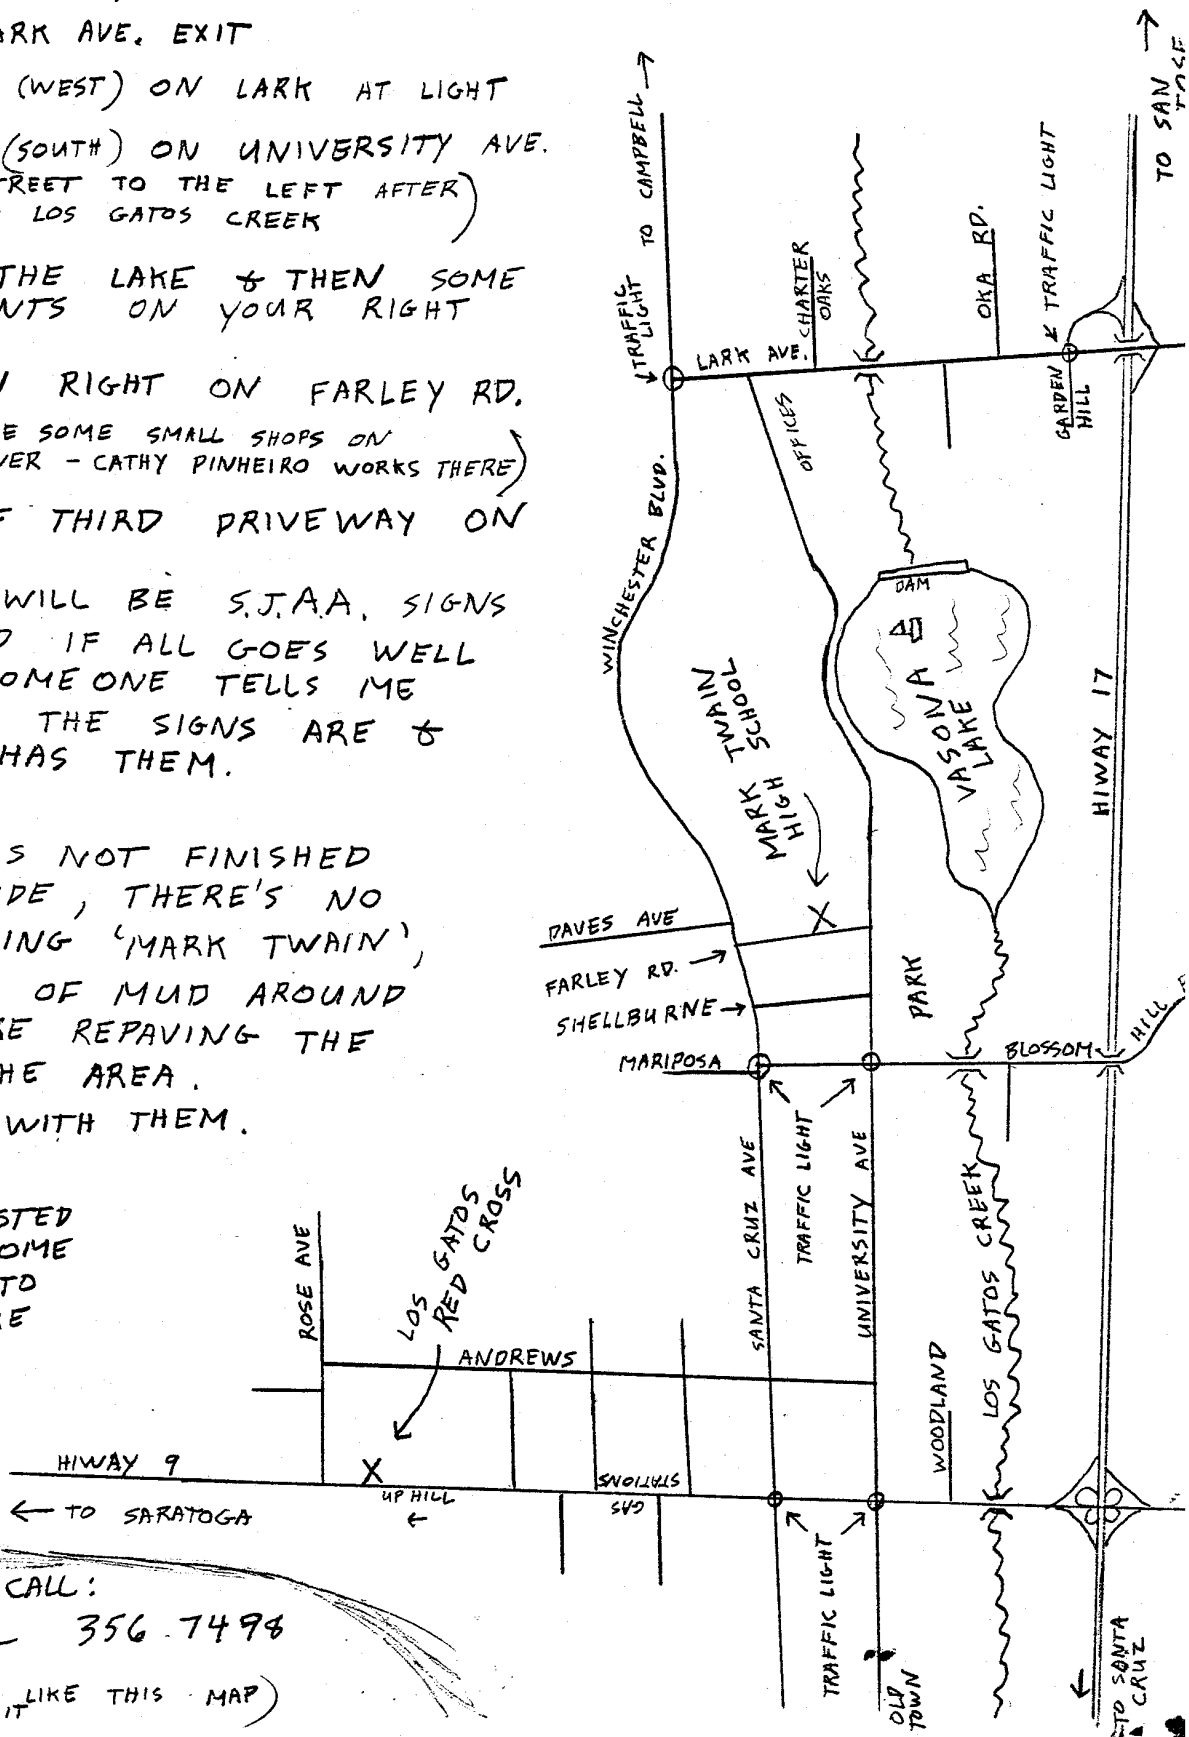 ARK AVE. EXIT
(WEST) ON LARK AT LIGHT
(SOUTH) ON UNIVERSITY AVE.
TREET TO THE LEFT AFTER)
LOS GATOS CREEK
THE LAKE & THEN SOME
NTS ON YOUR RIGHT
RIGHT ON FARLEY RD.
E SOME SMALL SHOPS ON
VER - CATHY PINHEIRO WORKS THERE)
THIRD DRIVEWAY ON
WILL BE S.J.A.A. SIGNS
IF ALL GOES WELL
OMEONE TELLS ME
THE SIGNS ARE &
HAS THEM.
S NOT FINISHED
DE, THERE'S NO
ING 'MARK TWAIN',
OF MUD AROUND
KE REPAVING THE
HE AREA.
WITH THEM.
STED
OME
TO
E
CALL:
356.7498
IT LIKE THIS MAP)
TO CAMPBELL
TRAFFIC LIGHT
LARK AVE.
CHARTER OAKS
OKA RD.
TRAFFIC LIGHT
TO SAN JOSE
GARDEN HILL
OFFICES
WINCHESTER BLVD.
DAM
VASONA LAKE
HIWAY 17
MARK TWAIN HIGH SCHOOL
X
DAVES AVE
FARLEY RD.
SHELLBURNE
MARIPOSA
PARK
BLOSSOM HILL
TRAFFIC LIGHT
SANTA CRUZ AVE
UNIVERSITY AVE
LOS GATOS CREEK
WOODLAND
ROSE AVE
LOS GATOS RED CROSS
ANDREWS
X
HIWAY 9
TO SARATOGA
UP HILL
GAS STATIONS
TRAFFIC LIGHT
OLD TOWN
TO SANTA CRUZ